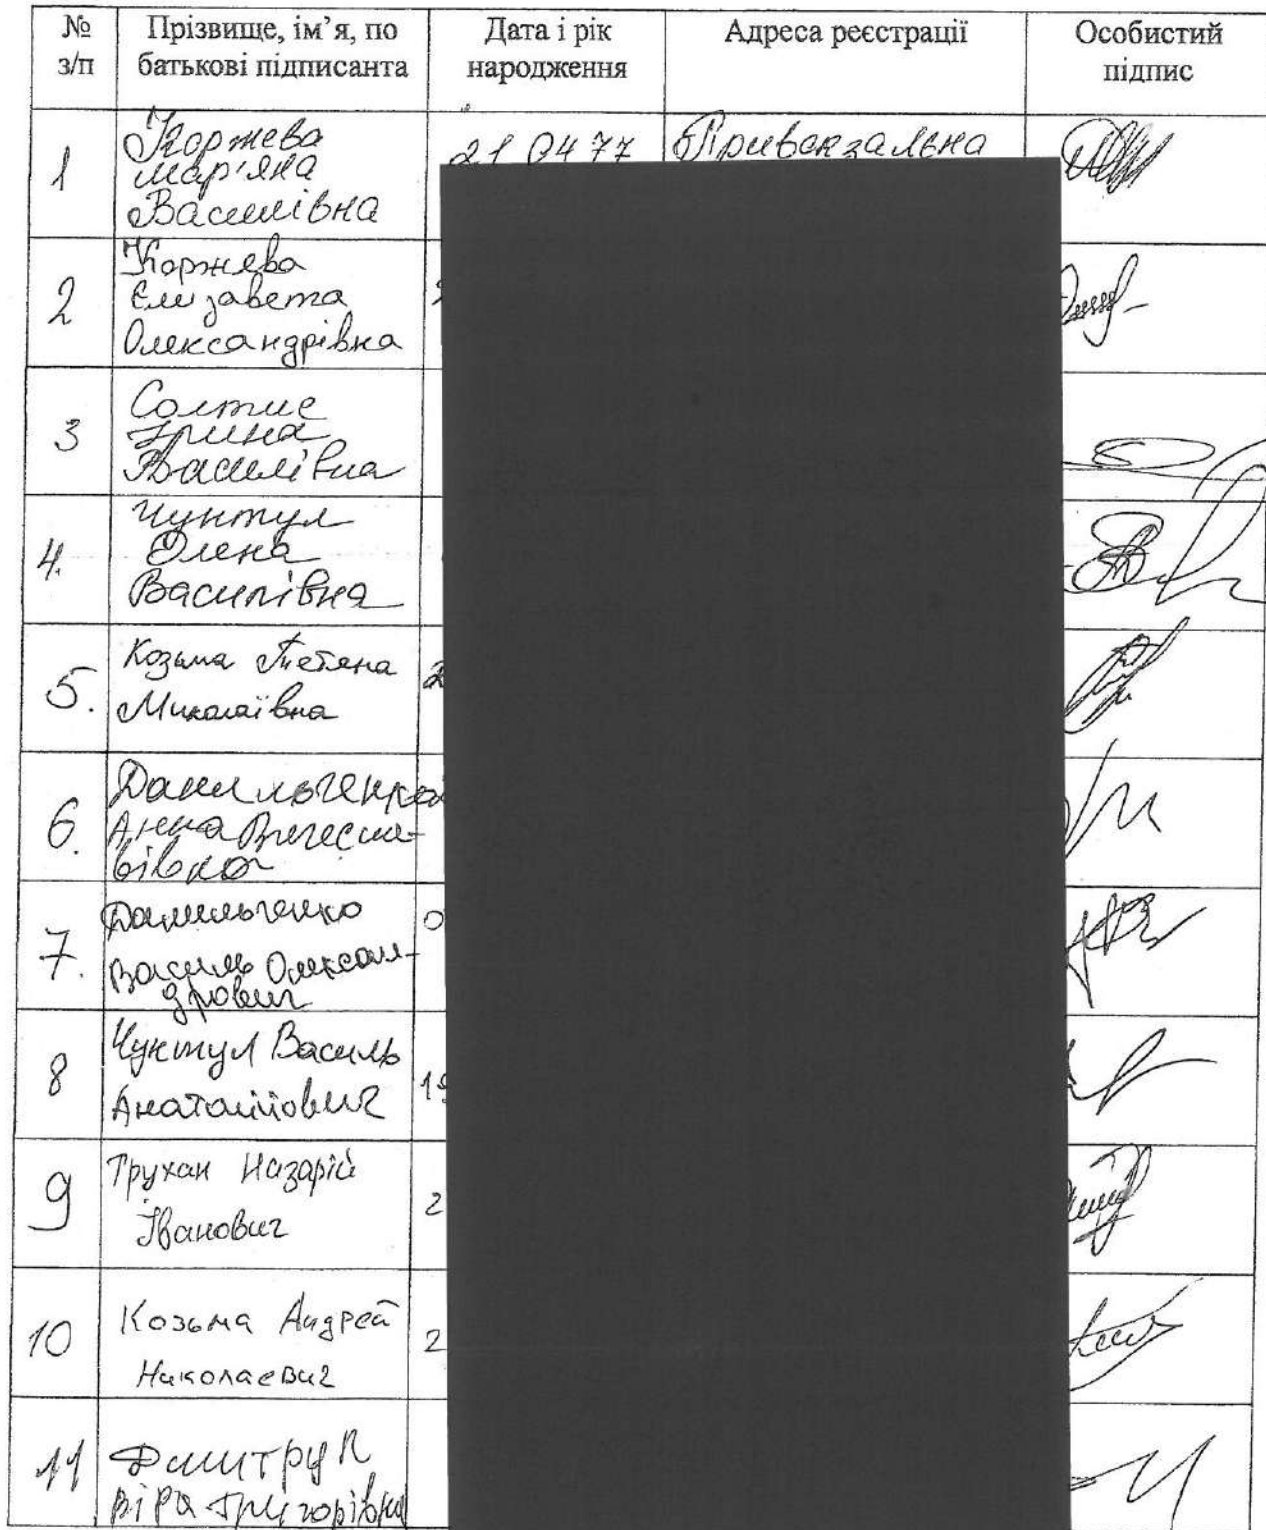 № з/п
Прізвище, ім’я, по батькові підписанта
Дата і рік народження
Адреса реєстрації
Особистий підпис
1
Коржева
Мар'яна
Василівна
21 04 77
Привокзальна
2
Коржева
Єлизавета
Олександрівна
3
Солтис
Ірина
Василівна
4.
Чунтул
Олена
Василівна
5.
Козьма Тетяна
Миколаївна
6.
Данильченко
Анна
7.
Данильченко
Василь Олексан-
дрович
8
Чунтул Василь
Анатолійович
19
9
Трухан Назарій
Іванович
2
10
Козьма Андрей
Николаевич
2
11
Віра Григорівна